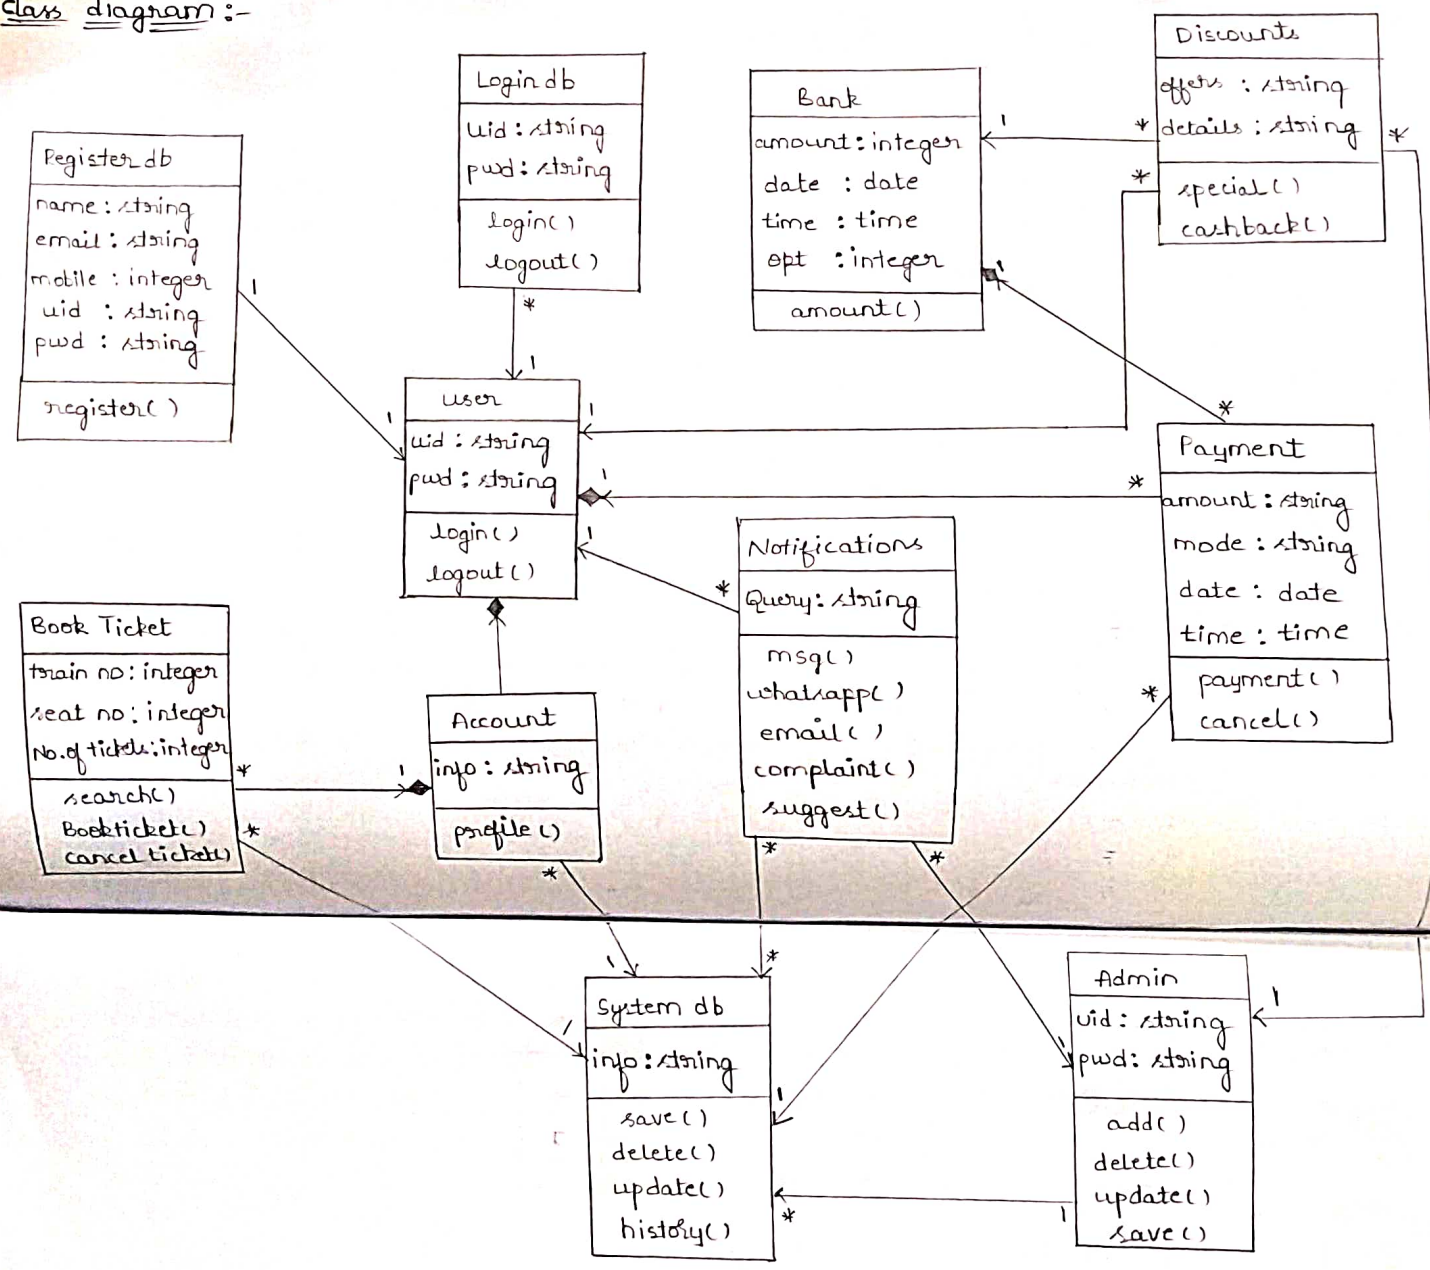 Class diagram :-
Register db
name : string
email : string
mobile : integer
uid : string
pwd : string
register( )
1
1
Login db
uid : string
pwd : string
login( )
logout( )
*
1
Bank
amount : integer
date : date
time : time
opt : integer
amount( )
1
*
1
*
Discounts
offers : string
details : string
special( )
cashback( )
*
*
user
uid : string
pwd : string
login( )
logout( )
1
1
*
1
*
Payment
amount : string
mode : string
date : date
time : time
payment( )
cancel( )
*
Notifications
Query : string
msg( )
whatsapp( )
email( )
complaint( )
suggest( )
*
*
*
Book Ticket
train no : integer
seat no : integer
No. of tickets : integer
search( )
Bookticket( )
Cancel ticket( )
*
1
*
Account
info : string
profile( )
*
1
1
System db
info : string
save( )
delete( )
update( )
history( )
1
*
1
Admin
uid : string
pwd : string
add( )
delete( )
update( )
save( )
1
1